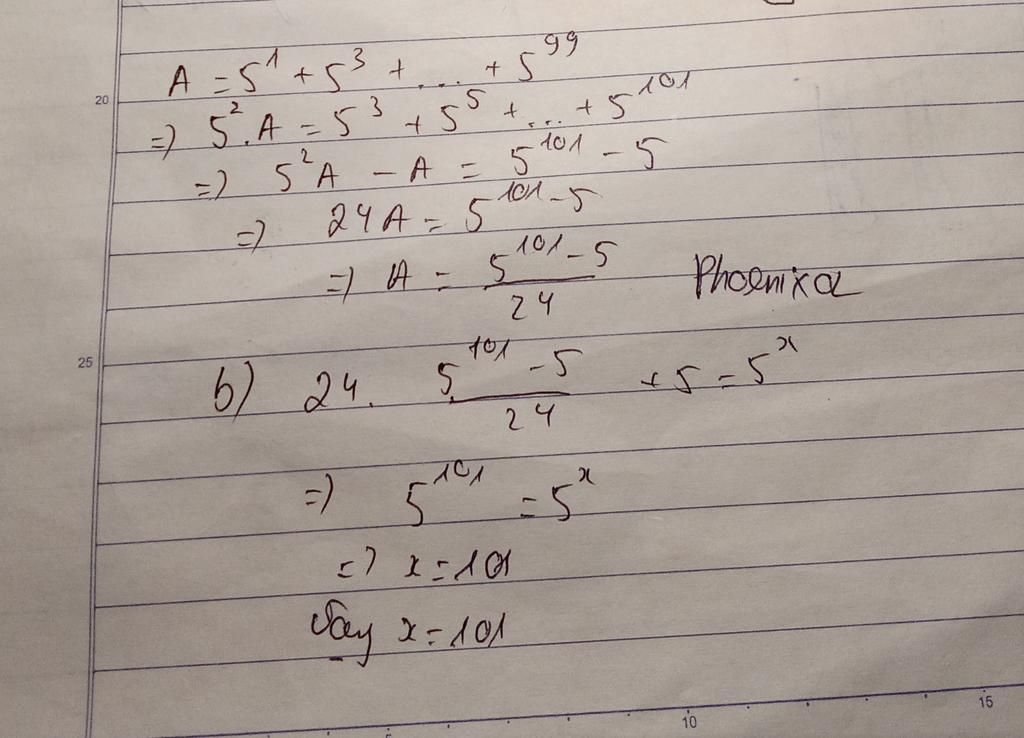 A = 5^1 + 5^3 + ... + 5^99
20
=> 5^2.A = 5^3 + 5^5 + ... + 5^101
=> 5^2A - A = 5^101 - 5
=> 24A = 5^101 - 5
=> A = (5^101 - 5)/24
Phoenixa
25
b) 24. (5^101 - 5)/24 + 5 = 5^x
=> 5^101 = 5^x
=> x = 101
Vậy x = 101
10
15